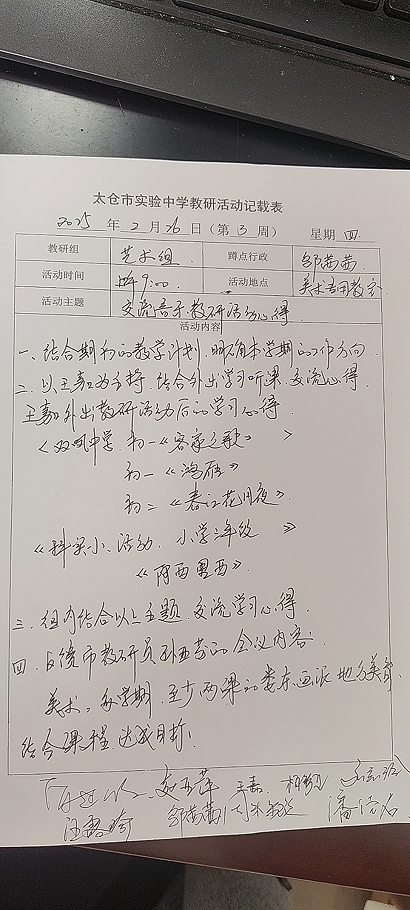 太仓市实验中学教研活动记载表
2025 年 2 月 26 日（第 3 周） 星期 四
教研组 艺术组 蹲点行政 邹茜茜
活动时间 9:00 活动地点 美术专用教室
活动主题 交流音乐教研活动心得
活动内容
一、结合期初的教学计划，明确本学期的工作方向
二、以王嘉为主持，结合外出学习听课，交流心得
王嘉外出教研活动后的学习心得
<双凤中学，初一《客家之歌》 >
初一《鸿雁》
初二《春江花月夜》
《科实小、活动，小学三年级 》
《阿西里西》
三、组内结合以上主题，交流学习心得
四、反馈市教研员的会议内容：
美术：每学期，至少两课的娄东画派地方美育，
结合课程达成目标；
王嘉
汪 邹茜茜 潘